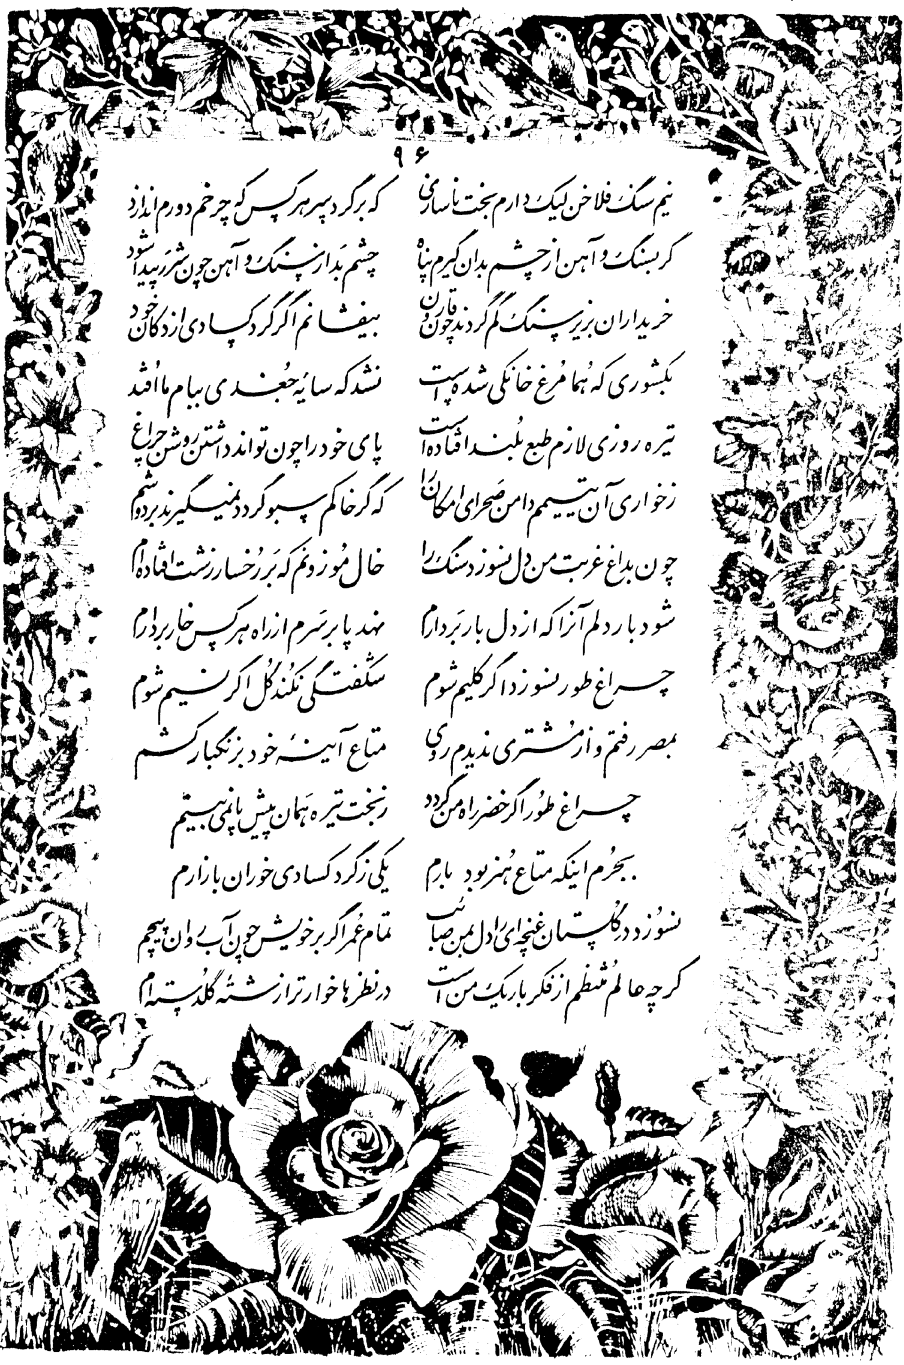 ۹۶
نیم سنگ فلاخن لیک دارم بخت ناسازی که بر گرد سر هر کس که چرخم دورم اندازد
گر بسنگ و آهن از چشم بدان گیرم پناه چشم بد از سنگ و آهن چون شرر پیدا شود
خریداران بزیر سنگ گم گردند چون قارون بیفشانم اگر گرد کسادی از دکان خود
بکشوری که هما مرغ خانگی شده است نشد که سایه جغدی ببام ما افتد
تیره روزی لازم طبع بلند افتاده است پای خود را چون تواند داشتن روشن چراغ
ز خواری آن یتیمم دامن صحرای امکان را که گر خاکم سبو گردد نمیگیرند بر دوشم
چون بداغ غربت من دل نسوزد سنگ را خال موزونم که بر رخسار زشت افتاده ام
شود بار دلم آنرا که از دل بار بردارم نهد پا بر سرم از راه هر کس خار بردارم
چراغ طور نسوزد اگر کلیم شوم شکفتگی نکند گل اگر نسیم شوم
بمصر رفتم و از مشتری ندیدم روی متاع آینه خود بزنگبار کشم
چراغ طور اگر خضر راه من گردد ز بخت تیره همان پیش پا نمی بینم
بجرم اینکه متاع هنر بود بارم یکی ز گرد کسادی خوران بازارم
نسوزد در گلستان غنچه ای را دل بمن صائب تمام عمر اگر بر خویش چون آب روان پیچم
گرچه عالم منتظم از فکر باریک من است در نظرها خوارتر از رشته گلدسته ام